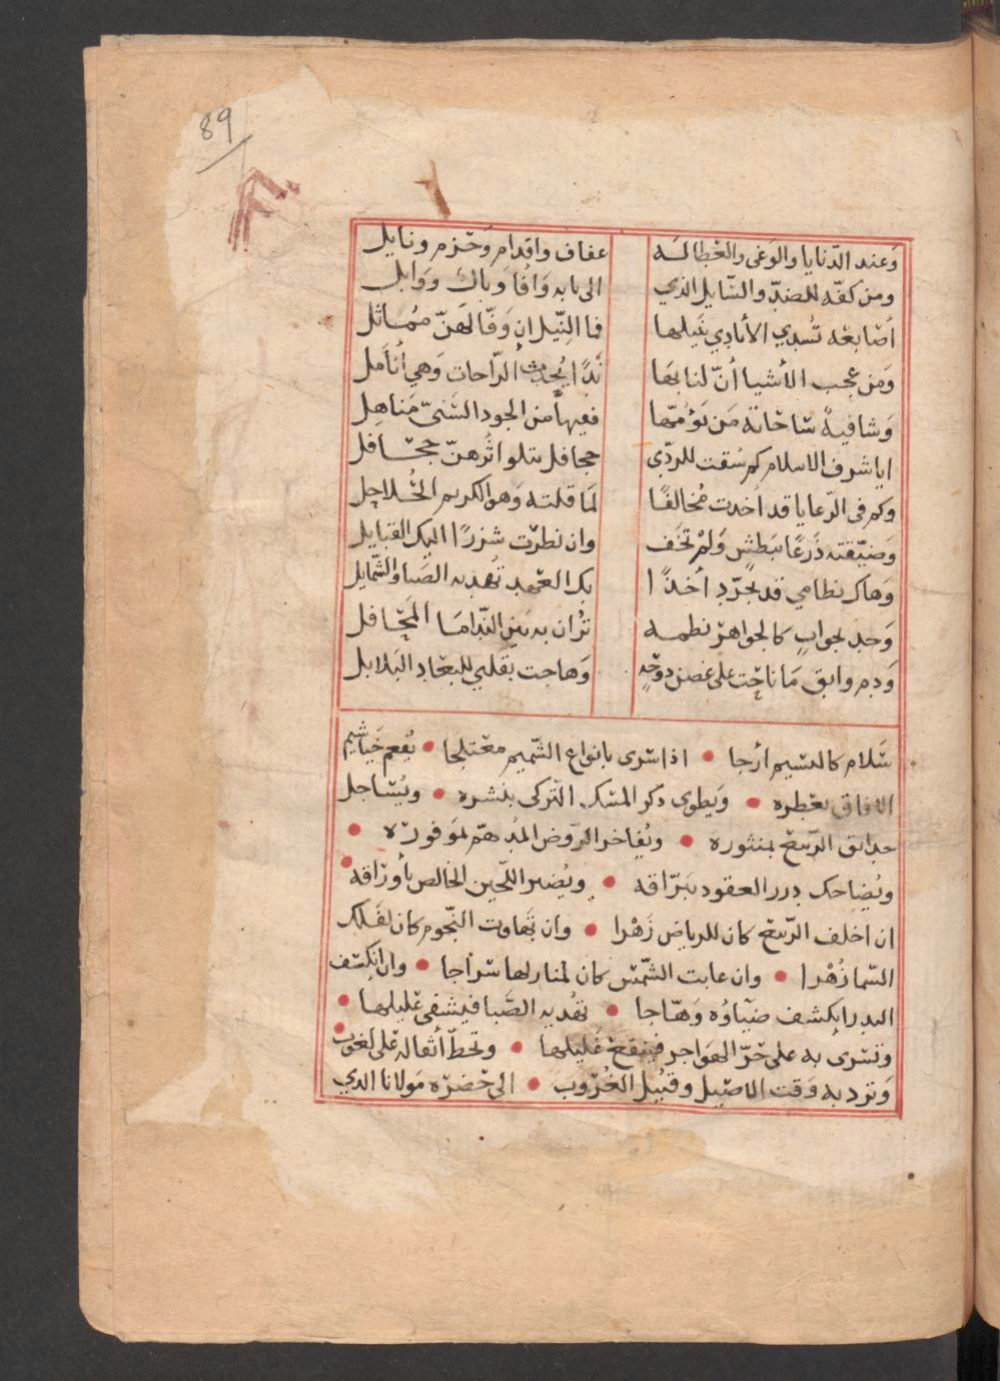 89
وَعند الدّنايا والوَغى والعْطا لَه عفاف واقدام وَحْزم ونايل
ومن كفّه للضدّ والسّايل الذي الى بابه وَافا وَباك وَوَابل
أصَابعْه تُسدي الأيادي بنَيلها فما النّيلان وَفّا لهَنّ مُمَاثل
وَمن عجب الأشيا أنّ لنا بهَا نَدًا يُحدث الرّاحات وَهي أنامل
وَشافية شاحاته مَن يَؤمّها فعيها من الجود السّنيّ مَناهِل
ايا شرف الاسلام كم سُقت للردّى جحافل تتلو اثُرهنّ جحْافل
وكم في الرّعايا قد أخدت مُخالفًا لمَا قلته وَهو الكريم الحُلاحِل
وَضيّقته ذَرعًا ببَطشٍ وَلمْ تخَف وان نظرَت شزرًا اليك القبايل
وَهاك نظامي قد تجرّد أخذًا بك العْهد تُهديه الصَبا والشّمايل
وَجد بجوابٍ كالجواهرْ نظمه تزُان به بَين النّدامَا المَحْافل
وَدم وابق مَا ناحْت على غصن دوحْه وَهاجت بقلبي للبعْاد البَلابل
سَلام كالنسيم أرجا • اذا سَرى بانواع الشّميم معْتلجا • يُفعم خَياشيم
الافاق بعْطره • وَيطوى ذكر المسْك التركى بنْشره • ويُسَاجل
حدايق الرّبيعْ بمنثوره • ويُفاخر الرّوض المُدهمّ بموَفوره •
ويُضاحك درر العقود ببَرّاقه • ويُضير اللّجين الخالص بأورَاقه •
ان اخلف الرّبيعْ كان للرياض زَهْرا • وان تهَاوت النّجوم كان لفَلك
السّما زُهْرا • وان غابت الشّمْس كان لمنازلها سرَاجا • وان انكسَف
البدر ابكشف ضيَاؤه وَهّاجا • تهُديه الصَّبا فيشفى عْليلها •
وتسْرى به على حَرّ الهَواجر فينقعْ غُليلها • وتحطّ أثقاله عْلى لغوب •
وَترد به وَقت الاصْيل وقبُيل الغُرْوب • الى حَضرْه مَولانا الذي